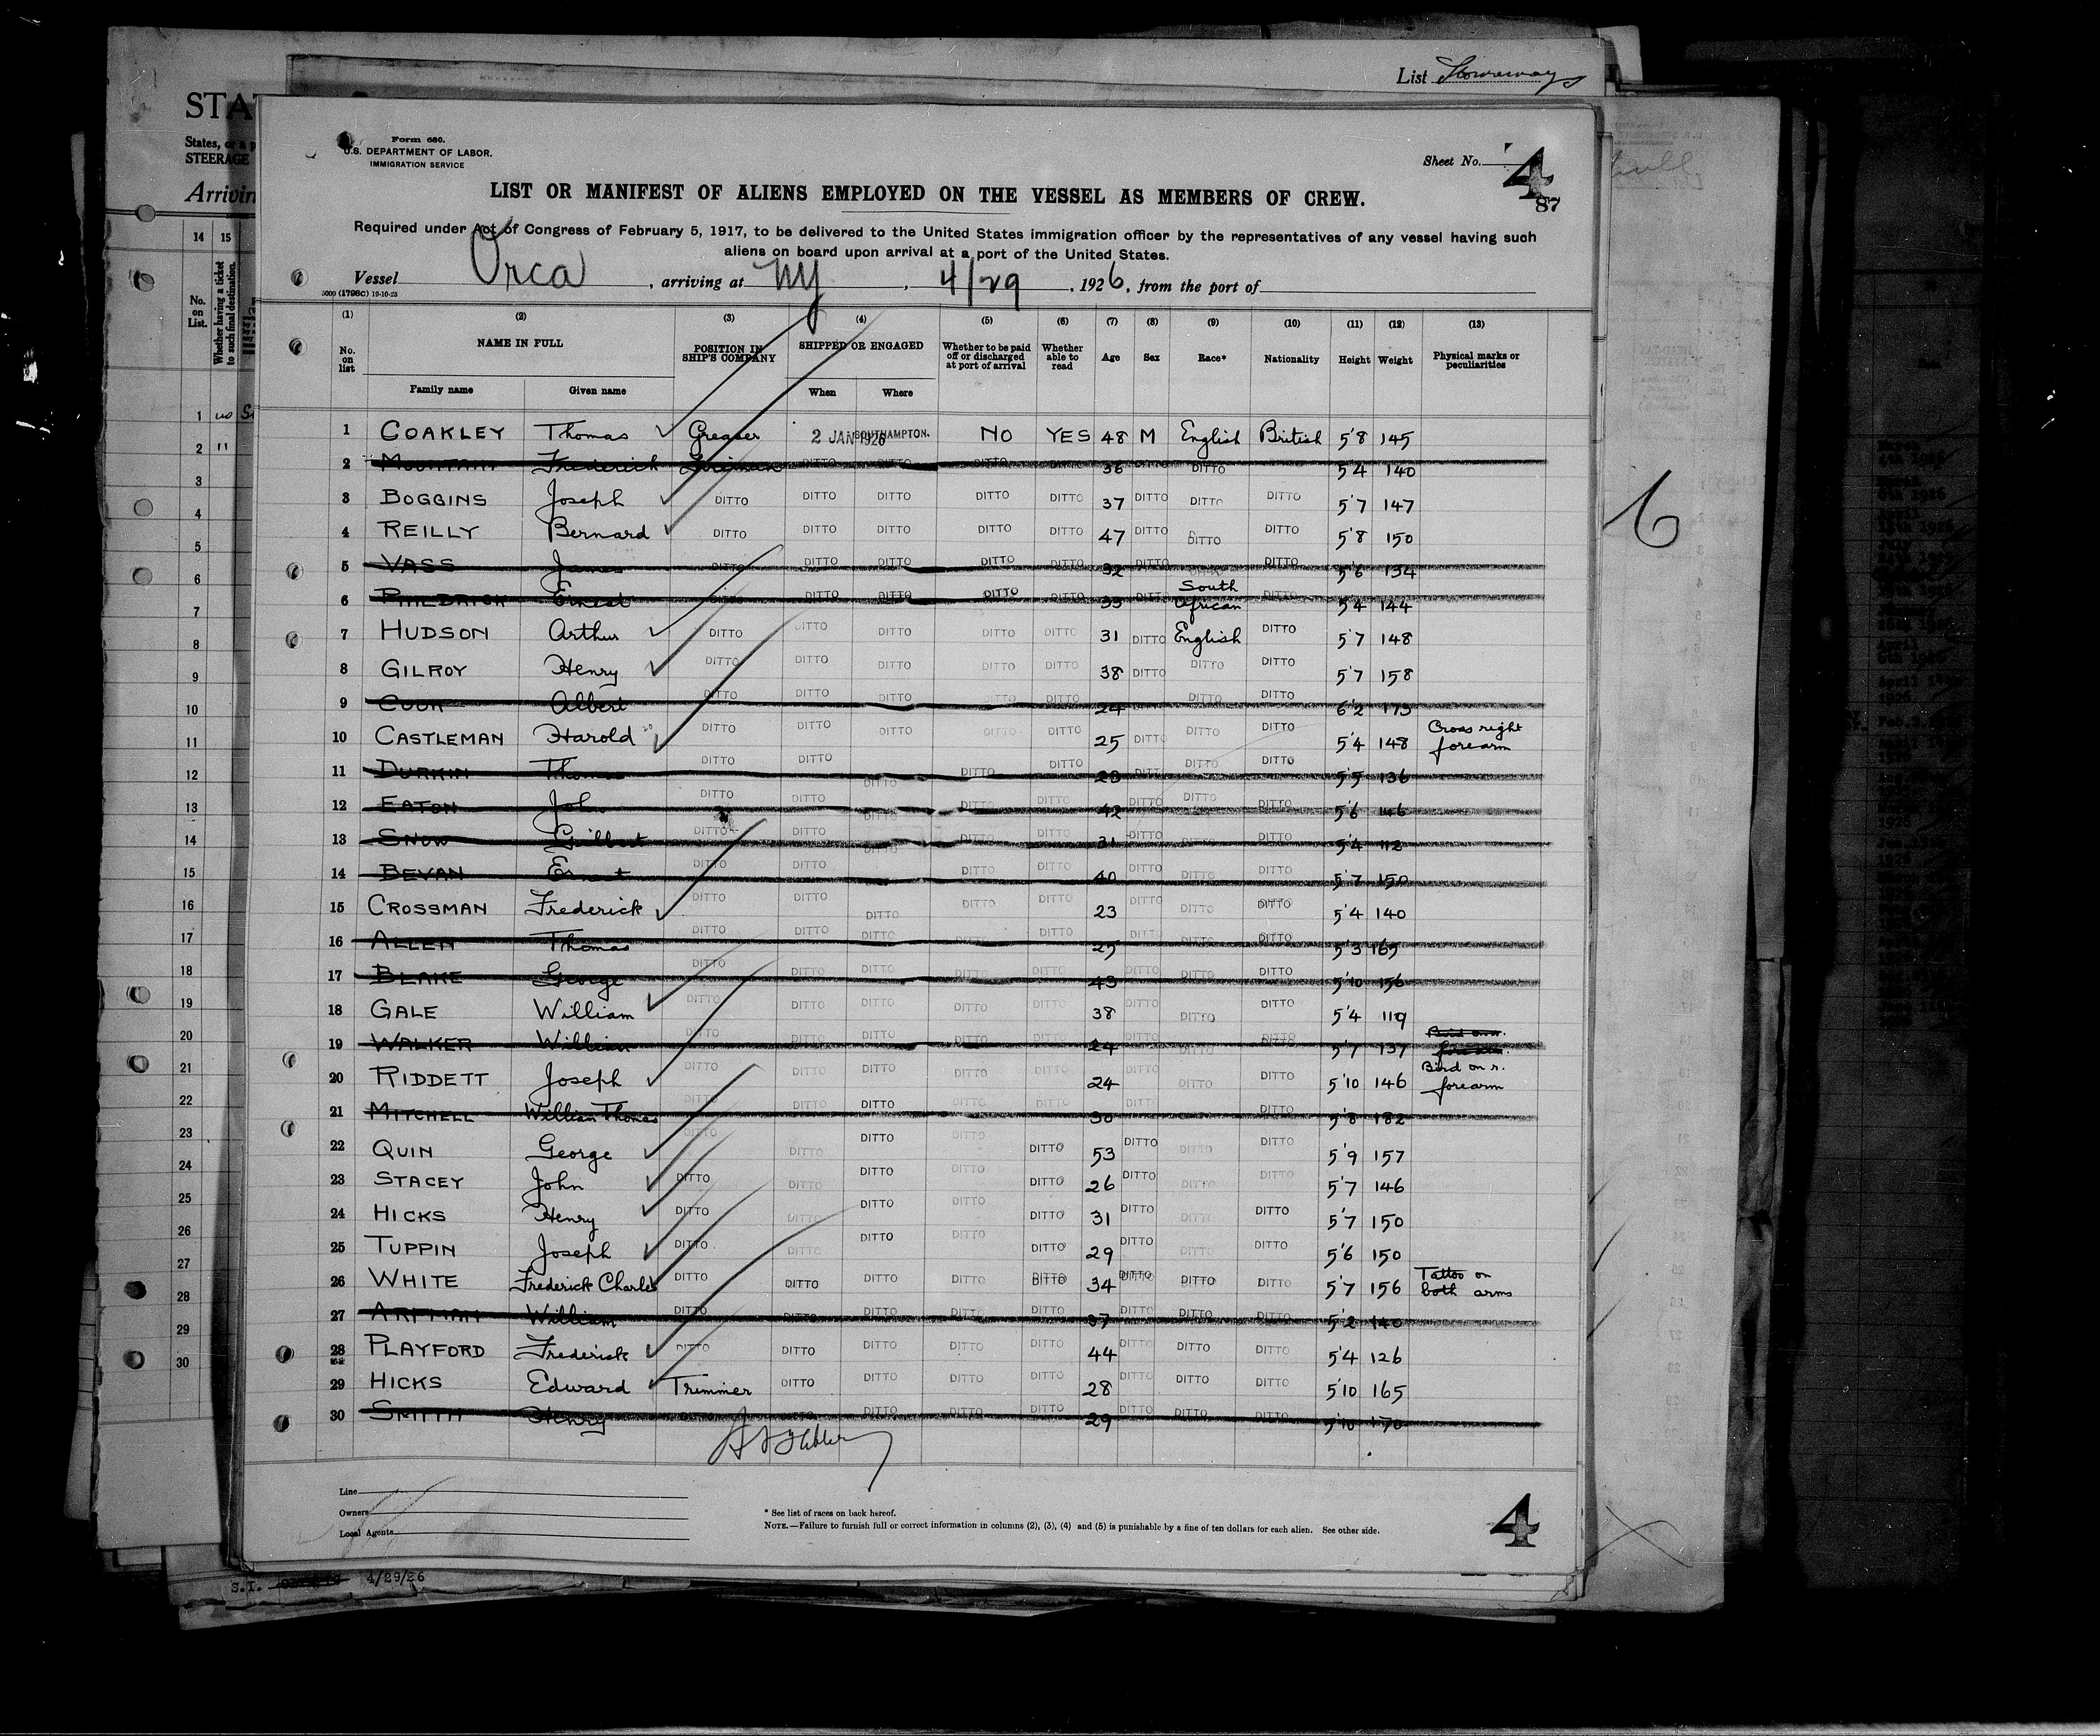 List Stowaways
STAT
States, or a p
STEERAGE
Arrivin
Form 680.
U.S. DEPARTMENT OF LABOR.
IMMIGRATION SERVICE
Sheet No. 4
87
LIST OR MANIFEST OF ALIENS EMPLOYED ON THE VESSEL AS MEMBERS OF CREW.
Required under Act of Congress of February 5, 1917, to be delivered to the United States immigration officer by the representatives of any vessel having such
aliens on board upon arrival at a port of the United States.
Vessel Orca, arriving at NY, 4/29, 1926, from the port of
(1) (2) (3) (4) (5) (6) (7) (8) (9) (10) (11) (12) (13)
No. on list NAME IN FULL POSITION IN SHIP'S COMPANY SHIPPED OR ENGAGED Whether to be paid off or discharged at port of arrival Whether able to read Age Sex Race* Nationality Height Weight Physical marks or peculiarities
Family name Given name When Where
1 COAKLEY Thomas Greaser 2 JAN 1926 SOUTHAMPTON. NO YES 48 M English British 5'8 145
2 Frederick DITTO DITTO DITTO DITTO 36 DITTO DITTO 5'4 140
3 BOGGINS Joseph DITTO DITTO DITTO DITTO DITTO 37 DITTO DITTO DITTO 5'7 147
4 REILLY Bernard DITTO DITTO DITTO DITTO DITTO 47 DITTO DITTO DITTO 5'8 150
5 VASS James DITTO DITTO DITTO DITTO DITTO 32 DITTO DITTO DITTO 5'6 134
6 PHILDRICK Ernest DITTO DITTO DITTO DITTO DITTO 33 DITTO South African DITTO 5'4 144
7 HUDSON Arthur DITTO DITTO DITTO DITTO DITTO 31 DITTO English DITTO 5'7 148
8 GILROY Henry DITTO DITTO DITTO DITTO DITTO 38 DITTO DITTO DITTO 5'7 158
9 COOK Albert DITTO DITTO DITTO DITTO DITTO 24 DITTO DITTO 6'2 173
10 CASTLEMAN Harold DITTO DITTO DITTO DITTO DITTO 25 DITTO DITTO DITTO 5'4 148 Cross right forearm
11 DURKIN Thomas DITTO DITTO DITTO DITTO DITTO 28 DITTO DITTO DITTO 5'5 136
12 EATON John DITTO DITTO DITTO DITTO DITTO 42 DITTO DITTO DITTO 5'6 146
13 SNOW Guilbert DITTO DITTO DITTO DITTO DITTO 31 DITTO DITTO DITTO 5'4 112
14 BEVAN Ernest DITTO DITTO DITTO DITTO DITTO 40 DITTO DITTO DITTO 5'7 150
15 CROSSMAN Frederick DITTO DITTO DITTO DITTO DITTO 23 DITTO DITTO DITTO 5'4 140
16 ALLEN Thomas DITTO DITTO DITTO DITTO DITTO 25 DITTO DITTO DITTO 5'3 165
17 BLAKE George DITTO DITTO DITTO DITTO DITTO 43 DITTO DITTO DITTO 5'10 156
18 GALE William DITTO DITTO DITTO DITTO DITTO 38 DITTO DITTO DITTO 5'4 119
19 WALKER William DITTO DITTO DITTO DITTO DITTO 24 DITTO DITTO DITTO 5'7 137 Bird on r. forearm.
20 RIDDETT Joseph DITTO DITTO DITTO DITTO DITTO 24 DITTO DITTO DITTO 5'10 146 Bird on r. forearm
21 MITCHELL William Thomas DITTO DITTO DITTO DITTO DITTO 30 DITTO DITTO 5'8 182
22 QUIN George DITTO DITTO DITTO DITTO DITTO 53 DITTO DITTO DITTO 5'9 157
23 STACEY John DITTO DITTO DITTO DITTO DITTO 26 DITTO DITTO DITTO 5'7 146
24 HICKS Henry DITTO DITTO DITTO DITTO DITTO 31 DITTO DITTO DITTO 5'7 150
25 TUPPIN Joseph DITTO DITTO DITTO DITTO DITTO 29 DITTO DITTO DITTO 5'6 150
26 WHITE Frederick Charles DITTO DITTO DITTO DITTO DITTO 34 DITTO DITTO DITTO 5'7 156 Tattoo on both arms
27 William DITTO DITTO DITTO DITTO DITTO 37 DITTO DITTO DITTO 5'2 140
28 PLAYFORD Frederick DITTO DITTO DITTO DITTO DITTO 44 DITTO DITTO DITTO 5'4 126
29 HICKS Edward Trimmer DITTO DITTO DITTO DITTO 28 DITTO DITTO DITTO 5'10 165
30 SMITH Henry DITTO DITTO DITTO DITTO DITTO 29 DITTO DITTO DITTO 5'10 170
Line
Owners
Local Agents
* See list of races on back hereof.
NOTE.—Failure to furnish full or correct information in columns (2), (3), (4) and (5) is punishable by a fine of ten dollars for each alien. See other side.
4
6
14 15
No. on List.
Whether having a ticket to such final destination.
1 no
2 "
3
4
5
6
7
8
9
10
11
12
13
14
15
16
17
18
19
20
21
22
23
24
25
26
27
28
29
30
S.I. 4/29/26